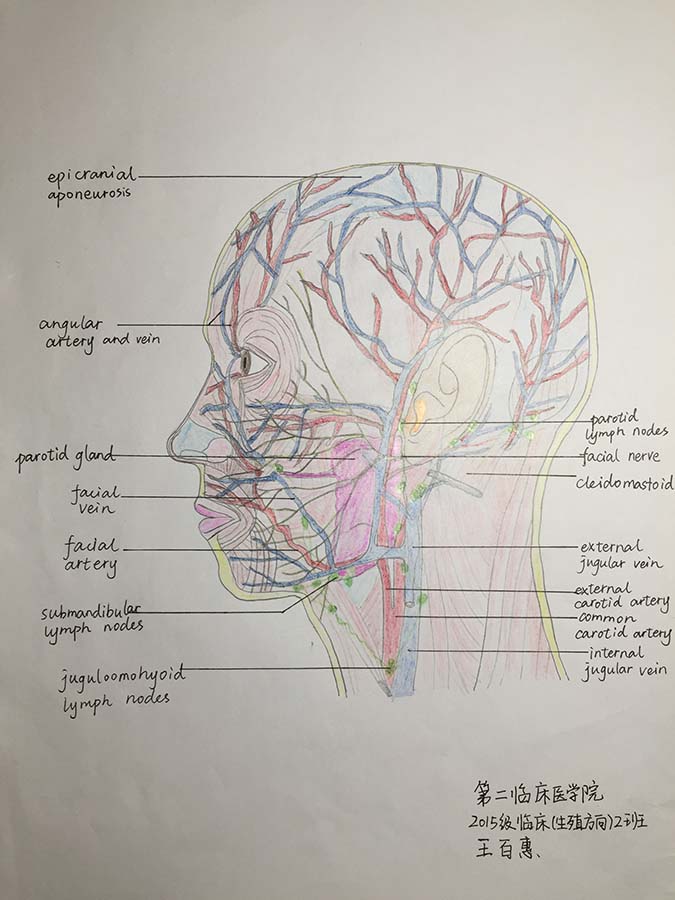 epicranial
aponeurosis
angular
artery and vein
parotid gland
facial
vein
facial
artery
submandibular
lymph nodes
juguloomohyoid
lymph nodes
parotid
lymph nodes
facial nerve
cleidomastoid
external
jugular vein
external
carotid artery
common
carotid artery
internal
jugular vein
第二临床医学院
2015级临床(生殖方向)2班
王百惠